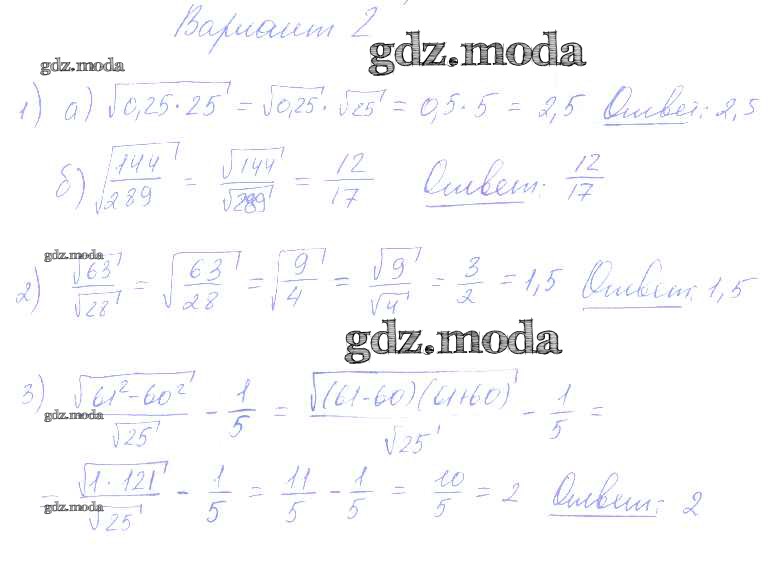 Вариант 2
gdz.moda
gdz.moda
1) а) √(0,25·25) = √0,25 · √25 = 0,5·5 = 2,5 Ответ: 2,5
б) √(144/289) = √144/√289 = 12/17 Ответ: 12/17
gdz.moda
2) √63/√28 = √(63/28) = √(9/4) = √9/√4 = 3/2 = 1,5 Ответ: 1,5
gdz.moda
3) √(61²-60²)/√25 - 1/5 = √((61-60)(61+60))/√25 - 1/5 =
gdz.moda
= √(1·121)/√25 - 1/5 = 11/5 - 1/5 = 10/5 = 2 Ответ: 2
gdz.moda